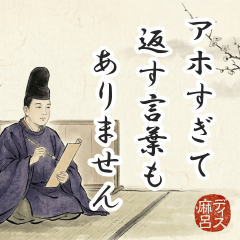 アホすぎて
返す言葉も
ありません
ディス
麻呂